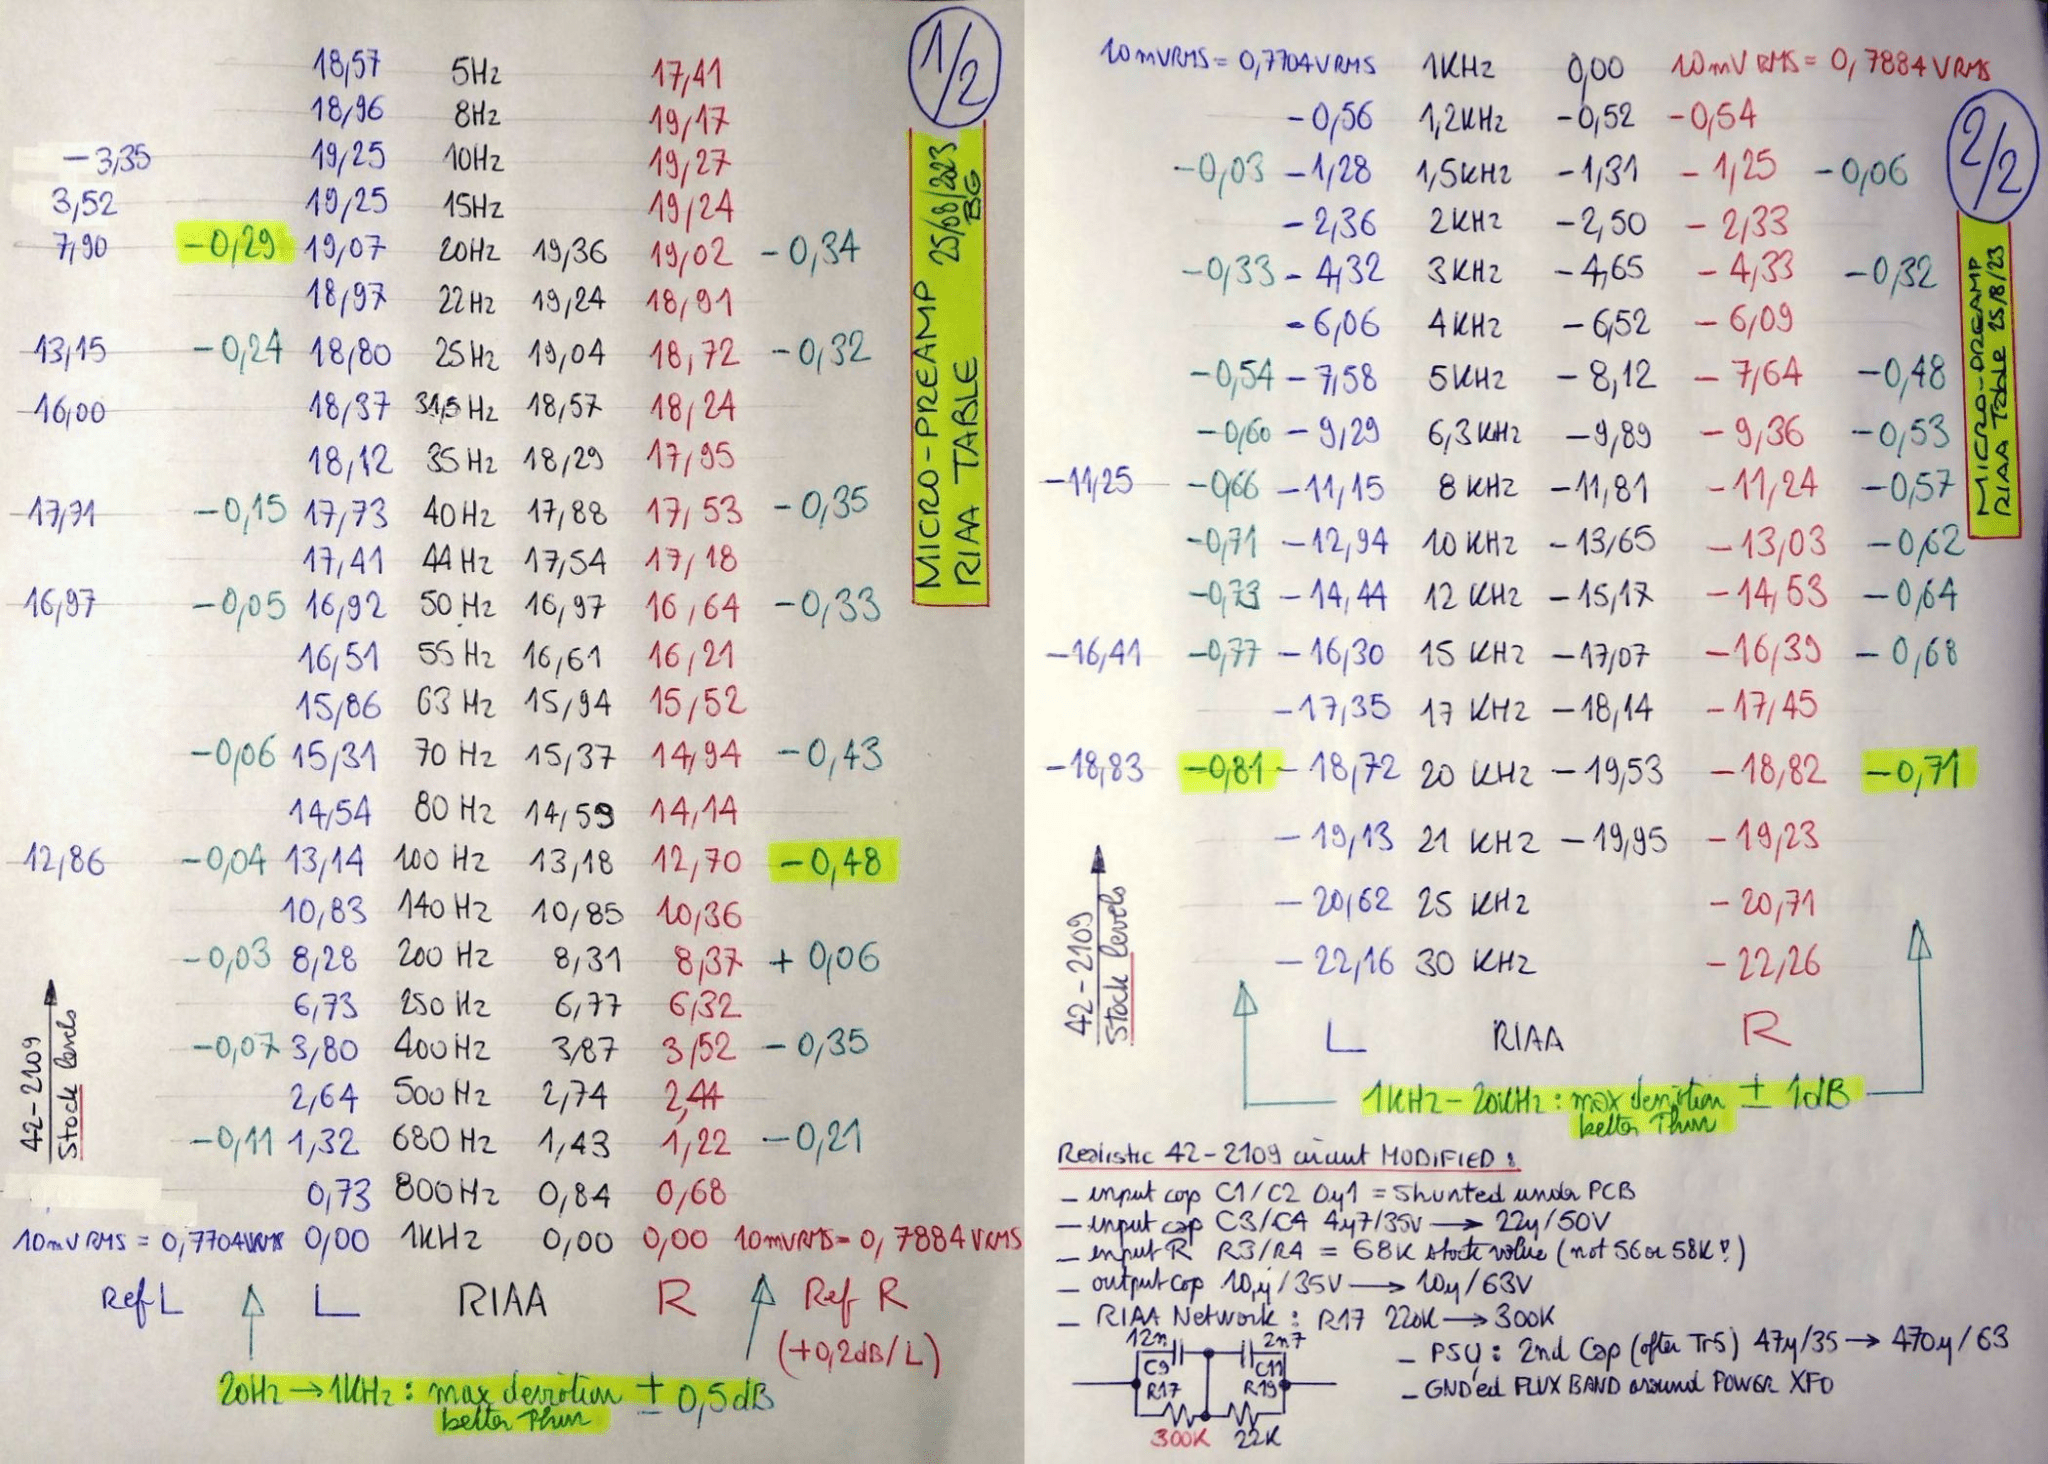 1/2
MICRO-PREAMP 25/08/2023
RIAA TABLE BG
18,57 5Hz 17,41
18,96 8Hz 19,17
-3,35 19,25 10Hz 19,27
3,52 19,25 15Hz 19,24
7,90 -0,29 19,07 20Hz 19,36 19,02 -0,34
18,97 22Hz 19,24 18,91
13,15 -0,24 18,80 25Hz 19,04 18,72 -0,32
16,00 18,37 31,5Hz 18,57 18,24
18,12 35Hz 18,29 17,95
17,71 -0,15 17,73 40Hz 17,88 17,53 -0,35
17,41 44Hz 17,54 17,18
16,97 -0,05 16,92 50Hz 16,97 16,64 -0,33
16,51 55Hz 16,61 16,21
15,86 63Hz 15,94 15,52
-0,06 15,31 70Hz 15,37 14,94 -0,43
14,54 80Hz 14,59 14,14
12,86 -0,04 13,14 100Hz 13,18 12,70 -0,48
10,83 140Hz 10,85 10,36
-0,03 8,28 200Hz 8,31 8,37 +0,06
6,73 250Hz 6,77 6,32
-0,07 3,80 400Hz 3,87 3,52 -0,35
2,64 500Hz 2,74 2,44
-0,11 1,32 680Hz 1,43 1,22 -0,21
0,73 800Hz 0,84 0,68
10mVRMS = 0,7704VRMS 0,00 1KHz 0,00 0,00 10mVRMS = 0,7884VRMS
42-2109
Stock levels
Ref L L RIAA R Ref R
(+0,2dB/L)
20Hz → 1KHz : max deviation ± 0,5dB
better Than
2/2
MICRO-PREAMP
RIAA Table 25/8/23
10mVRMS = 0,7704VRMS 1KHz 0,00 10mVRMS = 0,7884VRMS
-0,56 1,2KHz -0,52 -0,54
-0,03 -1,28 1,5KHz -1,31 -1,25 -0,06
-2,36 2KHz -2,50 -2,33
-0,33 -4,32 3KHz -4,65 -4,33 -0,32
-6,06 4KHz -6,52 -6,09
-0,54 -7,58 5KHz -8,12 -7,64 -0,48
-0,60 -9,29 6,3KHz -9,89 -9,36 -0,53
-11,25 -0,66 -11,15 8KHz -11,81 -11,24 -0,57
-0,71 -12,94 10KHz -13,65 -13,03 -0,62
-0,73 -14,44 12KHz -15,17 -14,53 -0,64
-16,41 -0,77 -16,30 15KHz -17,07 -16,39 -0,68
-17,35 17KHz -18,14 -17,45
-18,83 -0,81 -18,72 20KHz -19,53 -18,82 -0,71
-19,13 21KHz -19,95 -19,23
-20,62 25KHz -20,71
-22,16 30KHz -22,26
42-2109
Stock levels
L RIAA R
1KHz-20KHz : max deviation ± 1dB
better Than
Realistic 42-2109 circuit MODIFIED :
- input cap C1/C2 0µ1 = Shunted under PCB
- input cap C3/C4 4µ7/35V → 22µ/50V
- input R R3/R4 = 68K stock value (not 56 or 58K !)
- output cap 10µ/35V → 10µ/63V
- RIAA Network : R17 220K → 300K
- PSU : 2nd Cap (after Tr5) 47µ/35 → 470µ/63
- GND'ed FLUX BAND around POWER XFO
12n 2n7
C9 C11
R17 R19
300K 22K